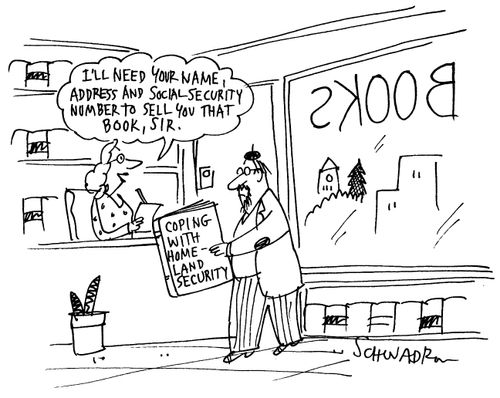 I'LL NEED YOUR NAME,
ADDRESS AND SOCIAL SECURITY
NUMBER TO SELL YOU THAT
BOOK, SIR.
BOOKS
COPING
WITH
HOME-
LAND
SECURITY
SCHWADRON